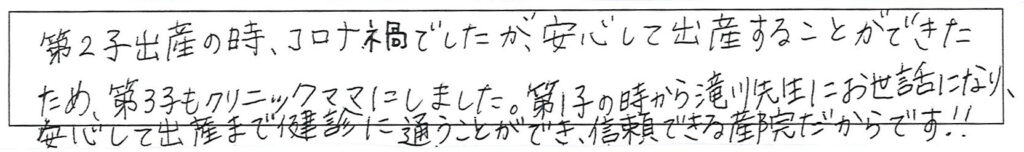 第2子出産の時、コロナ禍でしたが、安心して出産することができた
ため、第3子もクリニックママにしました。第1子の時から滝川先生にお世話になり、
安心して出産まで健診に通うことができ、信頼できる産院だからです!!